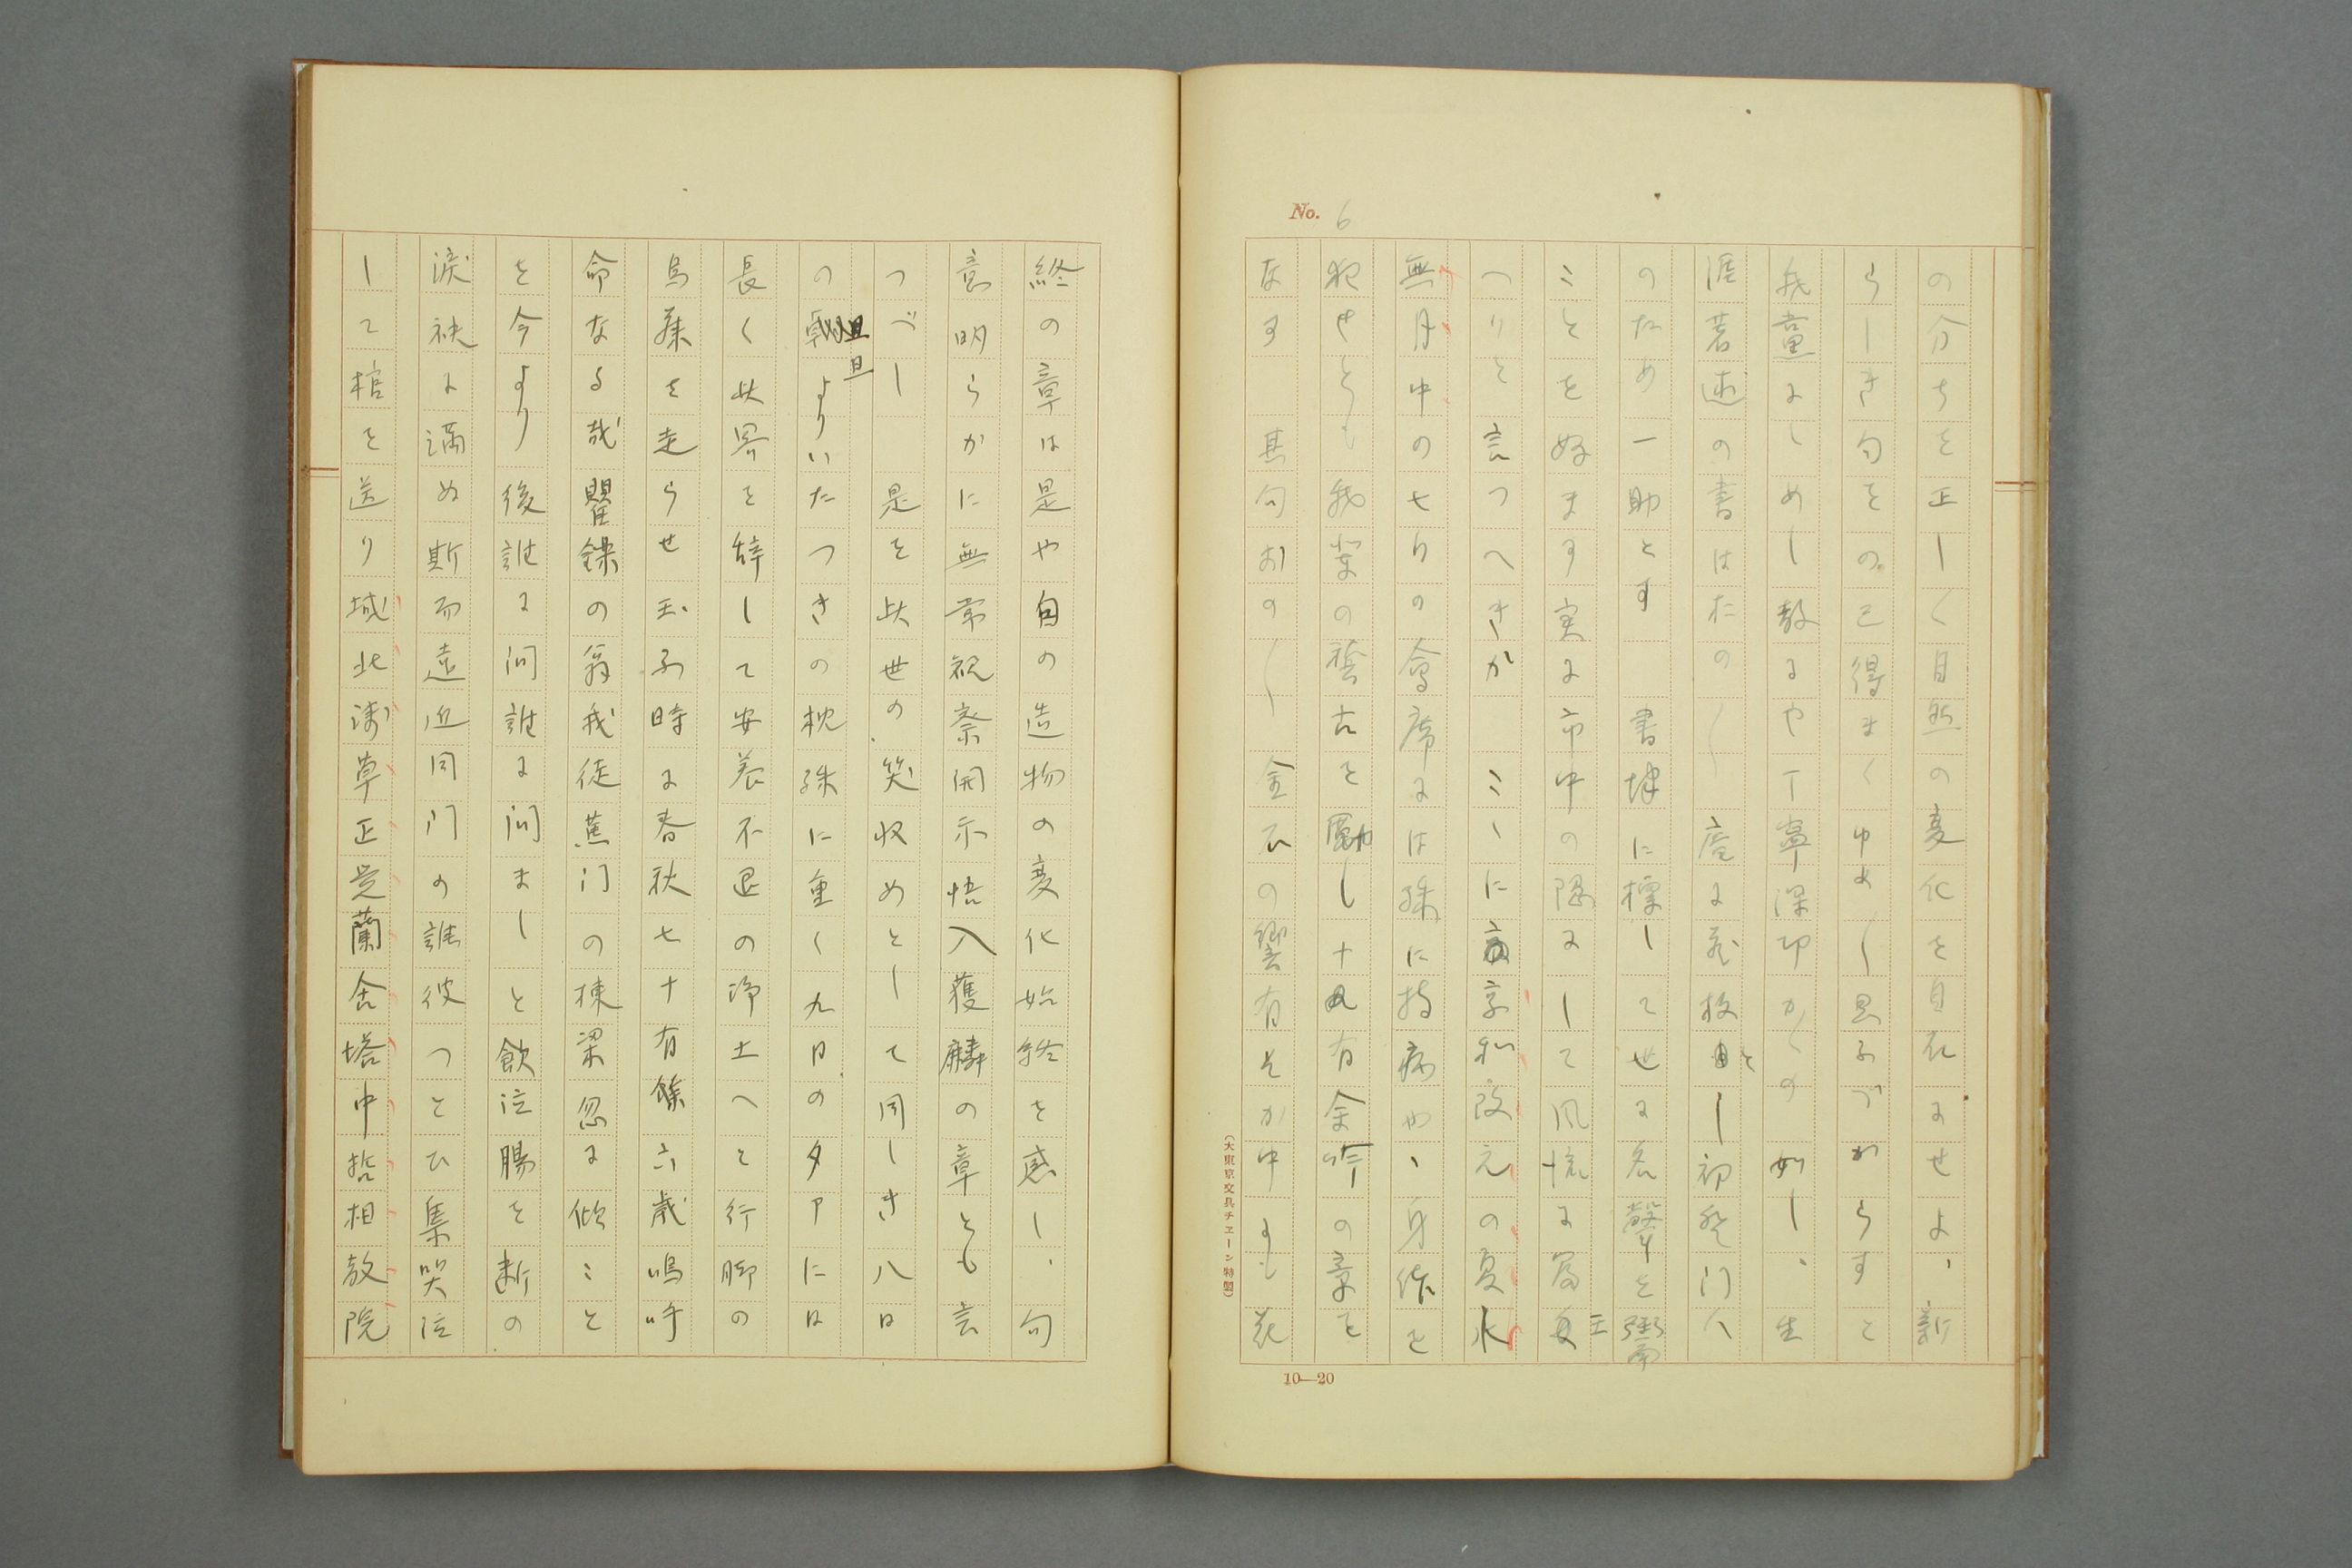 No. 6
の分ちを正しく自然の変化を目れにせよ、新
らしき句をの三得まくゆめ〳〵思ふべからすと
我童にしめし教るや丁寧深切かくの如し、生
涯著述の書はたの〳〵庵に蔵板と初発門人
のため一助とす　書肆に標して世に名聲を弼
ことを好ます実に市中の隠にして風流に富
へりと言つへきか　こゝに享和改元の夏水
無月中の七日の會席には殊に持病や、身体を
犯せとも我業の稽古を励し十有余吟の章を
なす　其句おの〳〵金石の響有そか中にも花
(大東京文具チエーン特製)
10—20
終の章は是や自の造物の変化始終を感し、句
意明らかに無常観察開示悟入獲麟の章とも言
つべし　是を此世の笑収めとして同しき八日
の旦よりいたつきの枕殊に重く九日の夕アには
長く此界を辞して安養不退の浄土へと行脚の
烏藁を走らせ玉ふ時に春秋七十有餘六歳嗚呼
命なる哉矍鑠の翁我徒蕉门の棟梁忽に傾こと
を今より後誰に问誰に问ましと飲泣腸を断の
涙袂に満ぬ斯而遠近同门の誰彼つとひ集哭泣
して棺を送り城北浅草正覚蘭舎塔中哲相教院